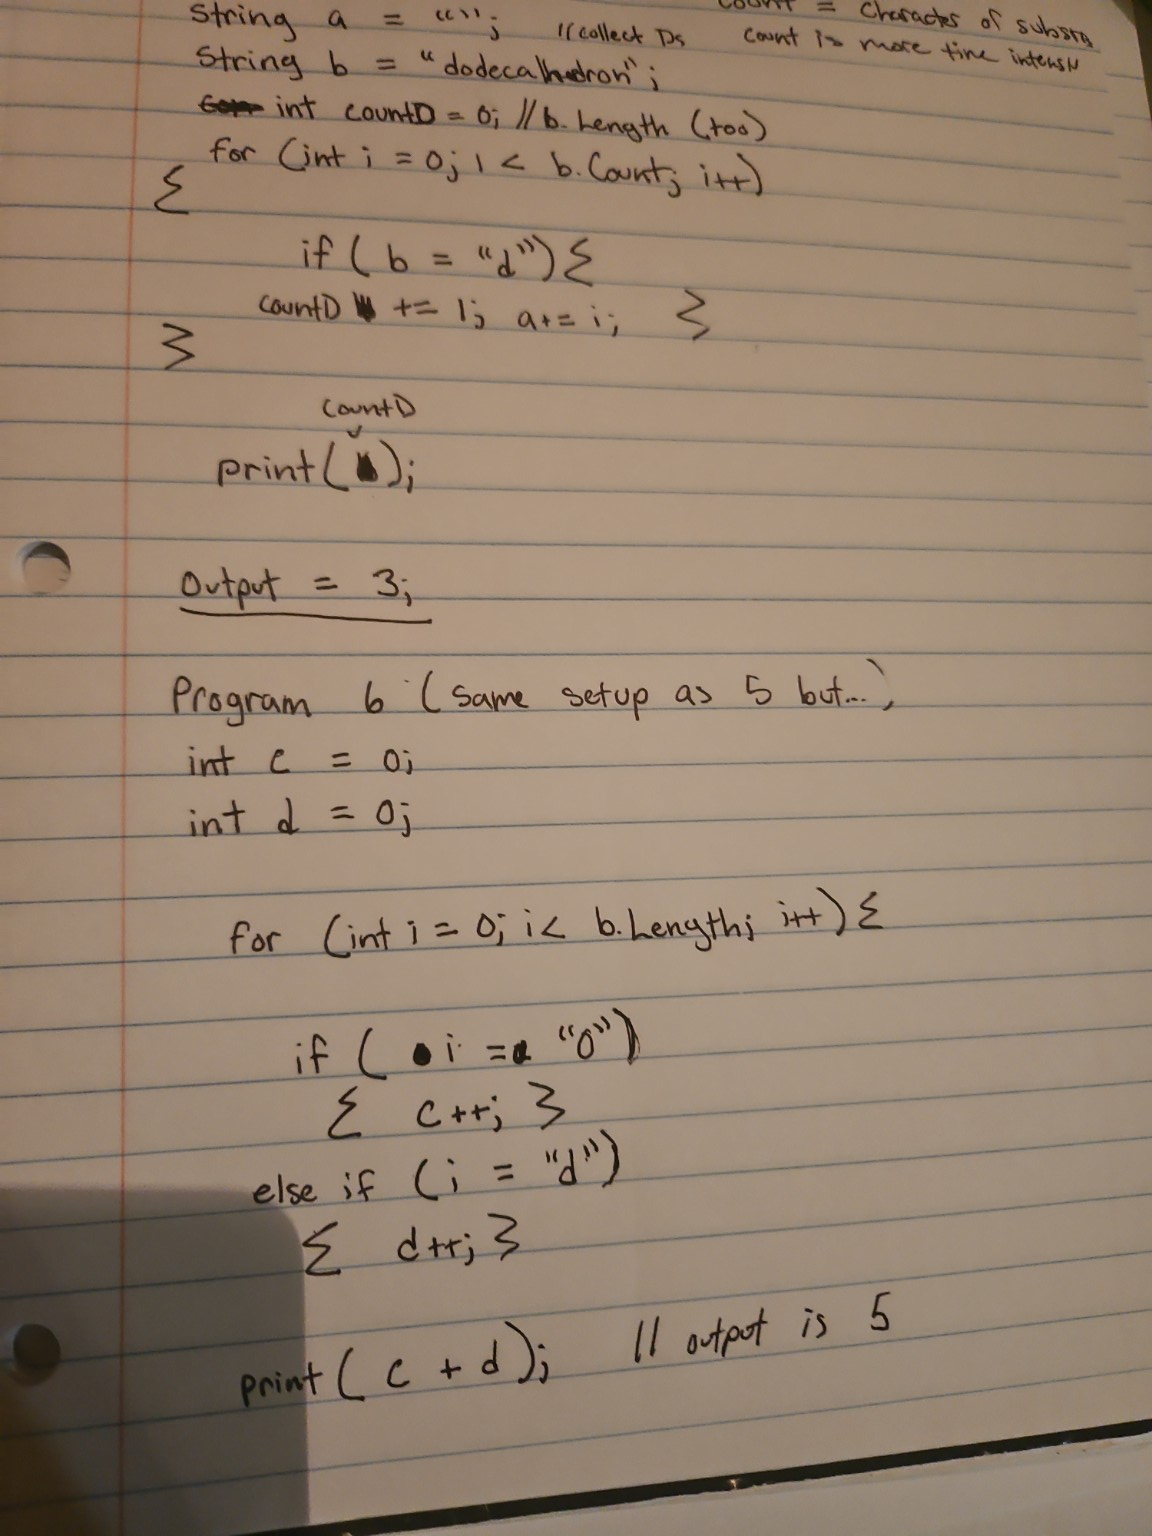 count = character of substrg
String a = ""; //collect Ds count is more time intensiv
String b = "dodecalhedron";
int countD = 0; // b.Length (too)
for (int i = 0; i < b.Count; i++)
{
if ( b = "d") {
countD += 1; a += i; }
}
countD
print( );
Output = 3;
Program 6 (same setup as 5 but...)
int c = 0;
int d = 0;
for (int i = 0; i < b.Length; i++) {
if ( i = "o")
{ c++; }
else if (i = "d")
{ d++; }
print( c + d ); // output is 5